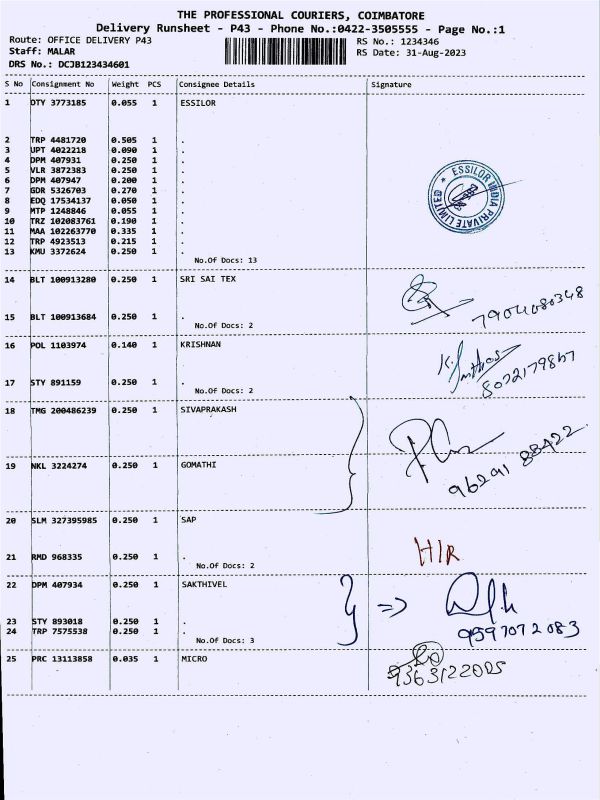 THE PROFESSIONAL COURIERS, COIMBATORE
Delivery Runsheet - P43 - Phone No.:0422-3505555 - Page No.:1
Route: OFFICE DELIVERY P43
Staff: MALAR
DRS No.: DCJB123434601
RS No.: 1234346
RS Date: 31-Aug-2023
S No Consignment No Weight PCS Consignee Details Signature
1 DTY 3773185 0.055 1 ESSILOR
2 TRP 4481720 0.505 1 .
3 UPT 4022218 0.090 1 .
4 DPM 407931 0.250 1 .
5 VLR 3872383 0.250 1 .
6 DPM 407947 0.200 1 .
7 GDR 5326703 0.270 1 .
8 EDQ 17534137 0.050 1 .
9 MTP 1248846 0.055 1 .
10 TRZ 102083761 0.190 1 .
11 MAA 102263770 0.335 1 .
12 TRP 4923513 0.215 1 .
13 KMU 3372624 0.250 1 .
No.Of Docs: 13
ESSILOR INDIA PRIVATE LIMITED
14 BLT 100913280 0.250 1 SRI SAI TEX
15 BLT 100913684 0.250 1 .
No.Of Docs: 2
7904080348
16 POL 1103974 0.140 1 KRISHNAN
17 STY 891159 0.250 1 .
No.Of Docs: 2
8072179867
18 TMG 200486239 0.250 1 SIVAPRAKASH
19 NKL 3224274 0.250 1 GOMATHI
96291 88422
20 SLM 327395985 0.250 1 SAP
21 RMD 968335 0.250 1 .
No.Of Docs: 2
HIR
22 DPM 407934 0.250 1 SAKTHIVEL
23 STY 893018 0.250 1 .
24 TRP 7575538 0.250 1 .
No.Of Docs: 3
9597072083
25 PRC 13113858 0.035 1 MICRO
9363122005